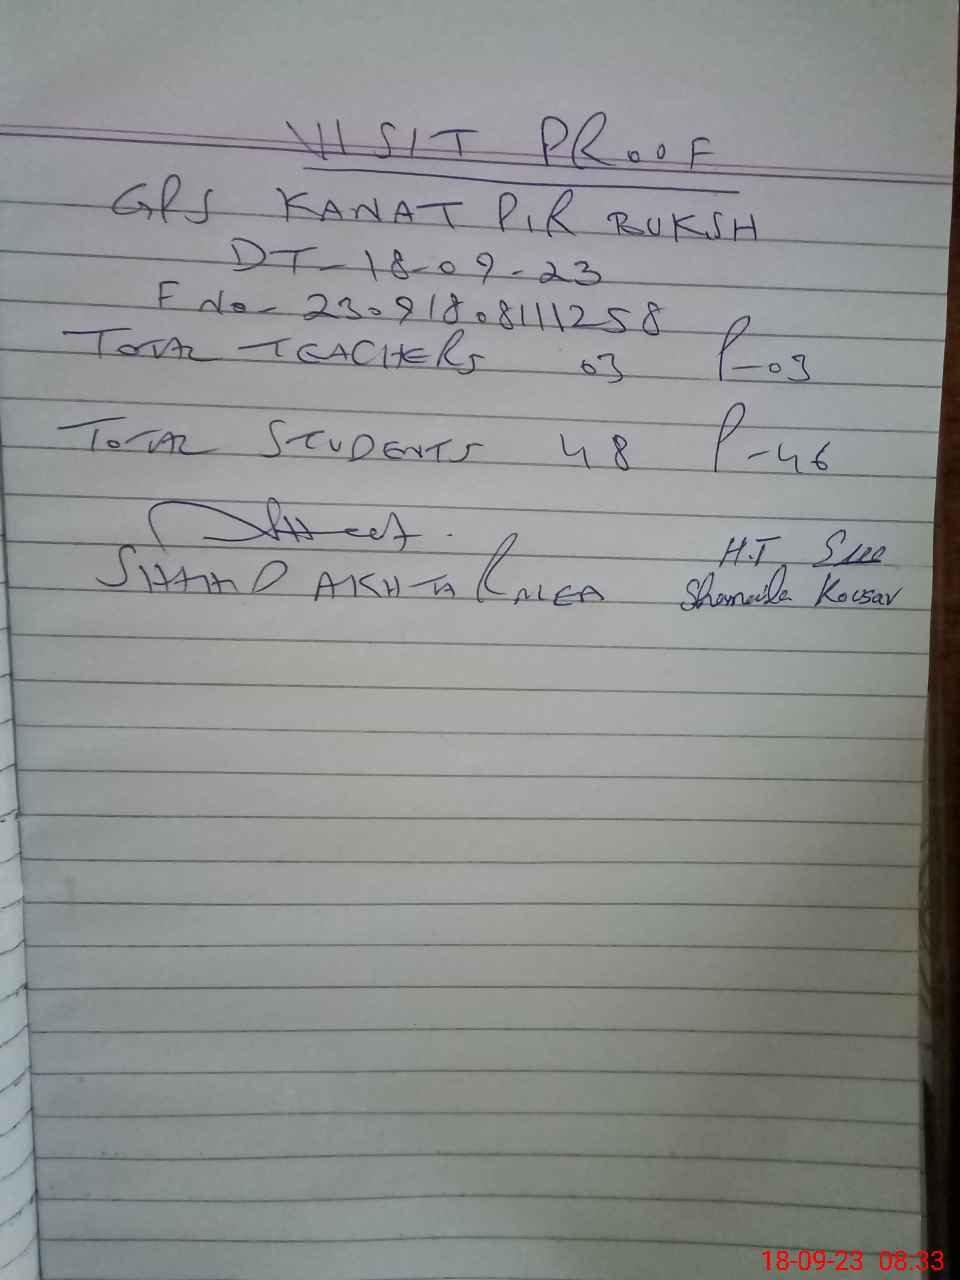 VISIT PROOF
GPS KANAT PIR BUKSH
DT-18-09-23
F No- 23091808111258
TOTAL TEACHERS 03 P-03
TOTAL STUDENTS 48 P-46
H.T
SHAHD AKHTAR MEA Shamaila Kousar
18-09-23 08:33